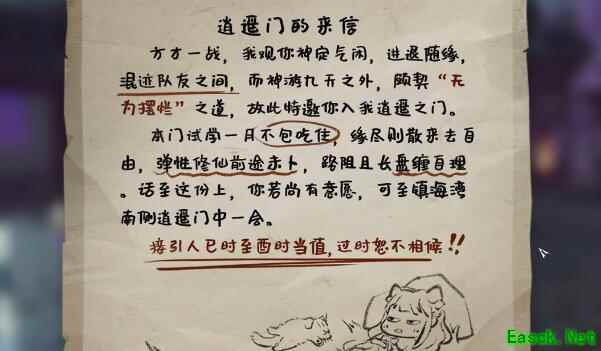 逍遥门的来信
方才一战，我观你神定气闲，进退随缘，
混迹队友之间，而神游九天之外，颇契“无
为摆烂”之道，故此特邀你入我逍遥之门。
本门试学一月不包吃住，缘尽则散来去自
由，弹性修仙前途未卜，路阻且长盘缠自理
。话至这份上，你若尚有意愿，可至镇海湾
南侧逍遥门中一会。
接引人巳时至酉时当值，过时恕不相候！！
Easck.Net